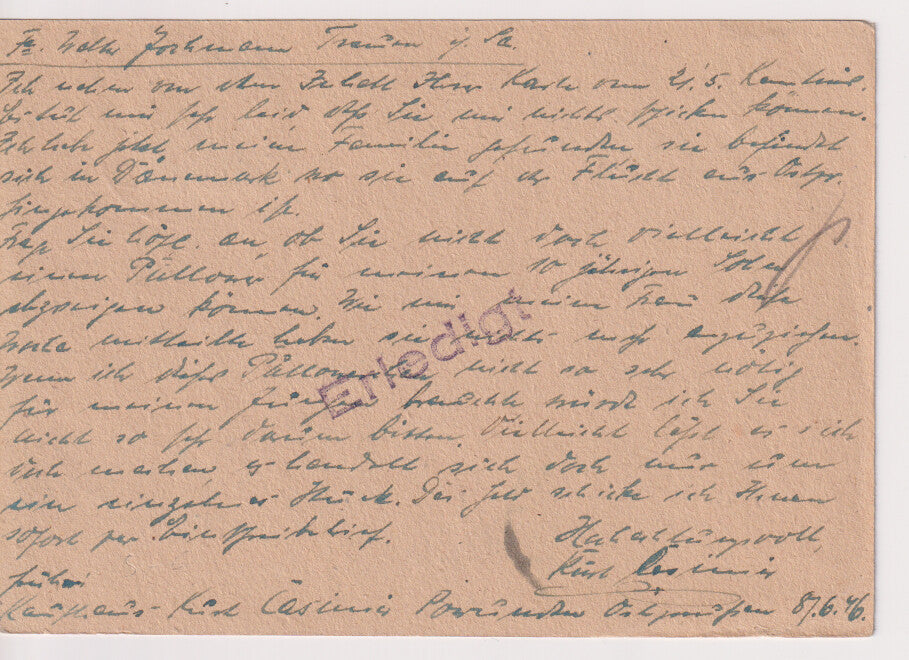 Fa. Walter Jochmann Treuen i. Sa.
Ich nehme von dem Inhalt Ihrer Karte vom 21.5. Kenntnis.
Es tut mir sehr leid dass Sie mir nichts schicken können.
Ich habe jetzt meine Familie gefunden sie befindet
sich in Dänemark wo sie auf der Flucht aus Ostpr.
hingekommen ist.
Frage Sie höfl. an, ob Sie nicht doch vielleicht
einen Pullover für meinen 10 jährigen Sohn
abzweigen können. Wie mir meine Frau diese
Woche mitteilte haben sie nichts mehr anzuziehen.
Wenn ich diesen Pullover nicht so sehr nötig
für meinen Jungen brauchte würde ich Sie
nicht so sehr darum bitten. Vielleicht lässt es sich
doch machen, es handelt sich doch nur um
ein einzelnes Stück. Das Geld schicke ich Ihnen
sofort per Einschreibebrief.
Hochachtungsvoll
Kurt Casimir
früher
Kaufhaus Kurt Casimir Powunden Ostpreußen 6.46.
Erledigt